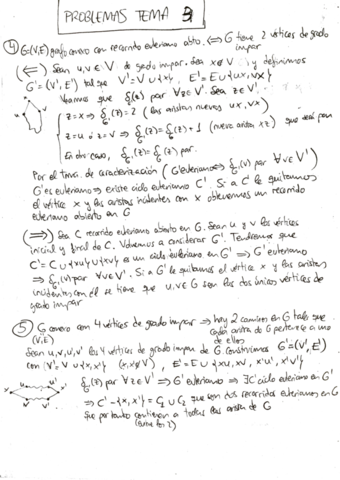 PROBLEMAS TEMA 3
④ G=(V,E) grafo conexo con recorrido euleriano abto. ⟺ G tiene 2 vértices de grado
impar
(⟸) Sean u,v∈V de grado impar. Sea x∉V y definimos
G'=(V',E') tal que V'=V∪{x}, E'=E∪{ux,vx}
Veamos que δ(z) par ∀z∈V'. Sea z∈V'.
z=x ⟹ δ(z)=2 (las aristas nuevas ux, vx)
z=u ó z=v ⟹ δ(z)=δ(z)+1 (nueva arista xz) que será par
En otro caso, δ(z)=δ(z) par.
Por el tma. de caracterización (G' euleriano ⟺ δ(v) par ∀v∈V')
G' es euleriano ⟹ existe ciclo euleriano C'. Si a C' le quitamos
el vértice x y las aristas incidentes con x obtenemos un recorrido
euleriano abierto en G
(⟹) Sea C recorrido euleriano abierto en G. Sean u y v los vértices
inicial y final de C. Volvamos a considerar G'. Tendremos que
C'=C∪{xu}∪{xv} es un ciclo euleriano en G' ⟹ G' euleriano
⟹ δ(v) par ∀v∈V'. Si a G' le quitamos el vértice x y las aristas
incidentes con él se tiene que u,v∈G son los dos únicos vértices de
grado impar
⑤ G conexo con 4 vértices de grado impar ⟹ hay 2 caminos en G tales que
(V,E) cada arista de G pertenece a uno
de ellos
Sean u,v,u',v' los 4 vértices de grado impar de G. Construimos G'=(V',E')
con V'=V∪{x,x'} (x,x'∉V), E'=E∪{xu, xv, x'u', x'v'}
δ(z) par ∀z∈V' ⟹ G' euleriano ⟹ ∃C' ciclo euleriano en G'
⟹ C'-{x,x'}=C₁∪C₂ que son dos recorridos eulerianos en G
que por tanto contienen a todas las aristas de G